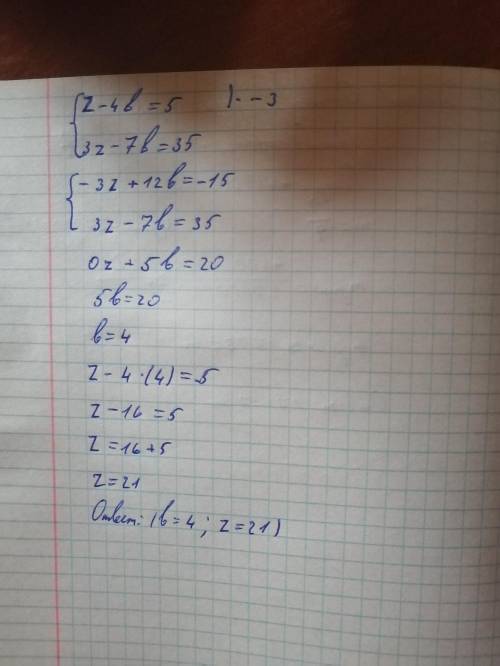 z - 4b = 5 | · -3
3z - 7b = 35
-3z + 12b = -15
3z - 7b = 35
0z + 5b = 20
5b = 20
b = 4
z - 4 · (4) = 5
z - 16 = 5
z = 16 + 5
z = 21
Ответ: (b = 4 ; z = 21)